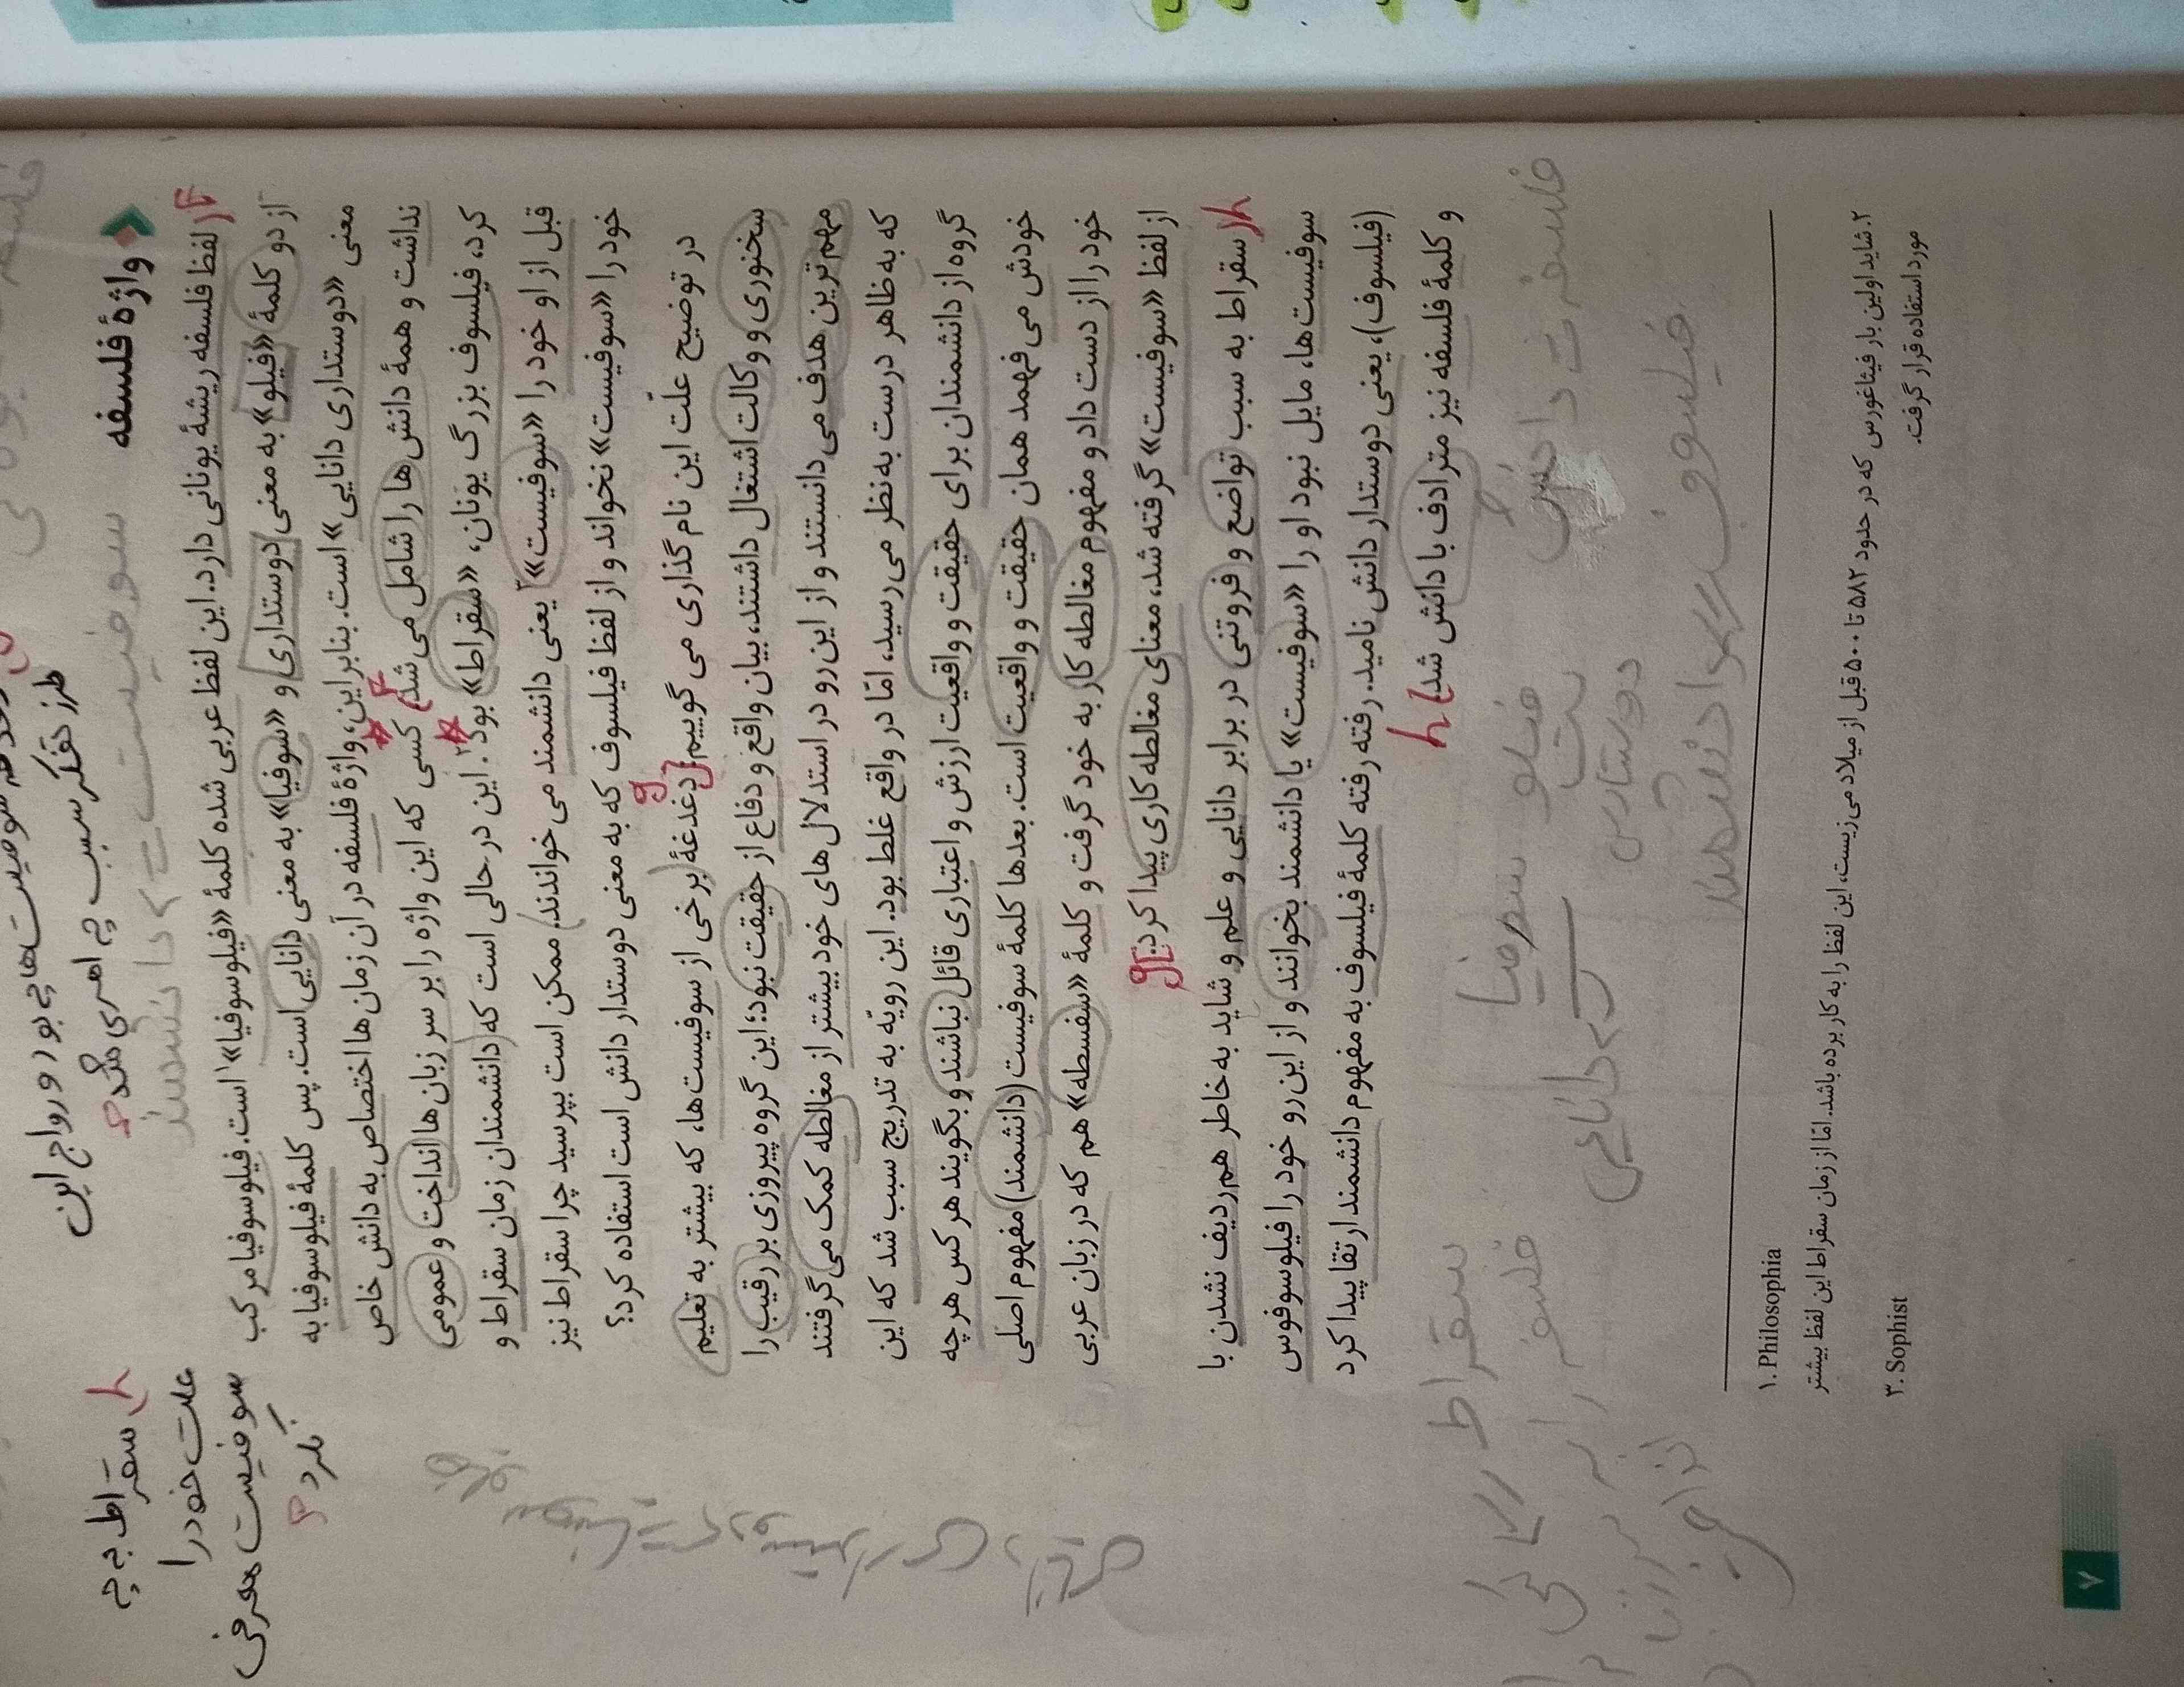 طرز تفکر سبب چه امری شد؟
سقراط به چه
علت خود را
سوفیست معرفی
نکرد؟
سوفیست = دانشمند
واژهٔ فلسفه
لفظ فلسفه ریشهٔ یونانی دارد. این لفظ عربی شده کلمهٔ «فیلوسوفیا»۱ است. فیلوسوفیا مرکب
از دو کلمهٔ «فیلو» به معنی دوستداری و «سوفیا» به معنی دانایی است. پس کلمهٔ فیلوسوفیا به
معنی «دوستداری دانایی» است. بنابراین، واژهٔ فلسفه در آن زمان‌ها اختصاص به دانش خاص
نداشت و همهٔ دانش‌ها را شامل می‌شد. کسی که این واژه را بر سر زبان‌ها انداخت و عمومی
کرد، فیلسوف بزرگ یونان، «سقراط» بود.۲ این در حالی است که دانشمندان زمان سقراط و
قبل از او خود را «سوفیست»۳ یعنی دانشمند می‌خواندند. ممکن است بپرسید چرا سقراط نیز
خود را «سوفیست» نخواند و از لفظ فیلسوف که به معنی دوستدار دانش است استفاده کرد؟
در توضیح علّت این نام گذاری می گوییم: دغدغهٔ برخی از سوفیست‌ها، که بیشتر به تعلیم
سخنوری و وکالت اشتغال داشتند، بیان واقع و دفاع از حقیقت نبود؛ این گروه پیروزی بر رقیب را
مهم‌ترین هدف می‌دانستند و از این‌رو در استدلال‌های خود بیشتر از مغالطه کمک می‌گرفتند
که به ظاهر درست به‌نظر می‌رسید، امّا در واقع غلط بود. این رویّه به تدریج سبب شد که این
گروه از دانشمندان برای حقیقت و واقعیت ارزش و اعتباری قائل نباشند و بگویند هر کس هر چه
خودش می فهمد همان حقیقت و واقعیت است. بعدها کلمهٔ سوفیست (دانشمند) مفهوم اصلی
خود را از دست داد و مفهوم مغالطه کار به خود گرفت و کلمهٔ «سفسطه» هم که در زبان عربی
از لفظ «سوفیست» گرفته شد، معنای مغالطه کاری پیدا کرد.
سقراط به سبب تواضع و فروتنی در برابر دانایی و علم و شاید به خاطر هم‌ردیف نشدن با
سوفیست‌ها، مایل نبود او را «سوفیست» یا دانشمند بخوانند و از این رو خود را فیلوسوفوس
(فیلسوف)، یعنی دوستدار دانش نامید. رفته رفته کلمهٔ فیلسوف به مفهوم دانشمند ارتقا پیدا کرد
و کلمهٔ فلسفه نیز مترادف با دانش شد.
فلسفه = دانش
فیلو سوفیا
دانایی
فیلسوف = دانشمند
سقراط
۱. Philosophia
۲. شاید اولین بار فیثاغورس که در حدود ۵۸۲ تا ۵۰۰ قبل از میلاد می‌زیست، این لفظ را به کار برده باشد. امّا از زمان سقراط این لفظ بیشتر
مورد استفاده قرار گرفت.
۳. Sophist
۷